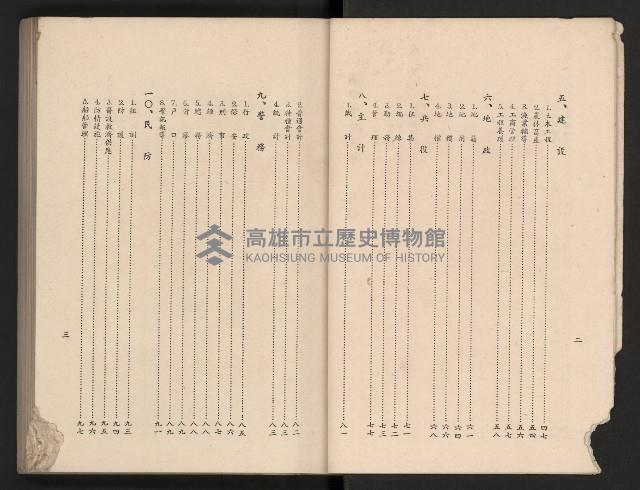 五、建設
1.土木工程……四七
2.農林畜產……五四
3.漁業輔導……五六
4.工商管理……五七
5.工程養護……五八
六、地政
1.地籍……六一
2.地用……六四
3.地價……六六
4.地權……六八
七、兵役
1.征集……七一
2.編練……七二
3.勤務……七三
4.管理……七七
八、主計
1.歲計……八一
二
2.普通會計……八二
3.特種會計……八三
4.統計……八三
九、警務
1.行政……八五
2.保安……八六
3.刑事……八七
4.經濟……八八
5.總務……八八
6.督察……八九
7.戶口……八九
8.警訊報導……九一
一〇、民防
1.組訓……九三
2.防護……九四
3.醫護救濟供應……九五
4.防情設施……九六
5.船舶管理……九七
三
高雄市立歷史博物館
KAOHSIUNG MUSEUM OF HISTORY